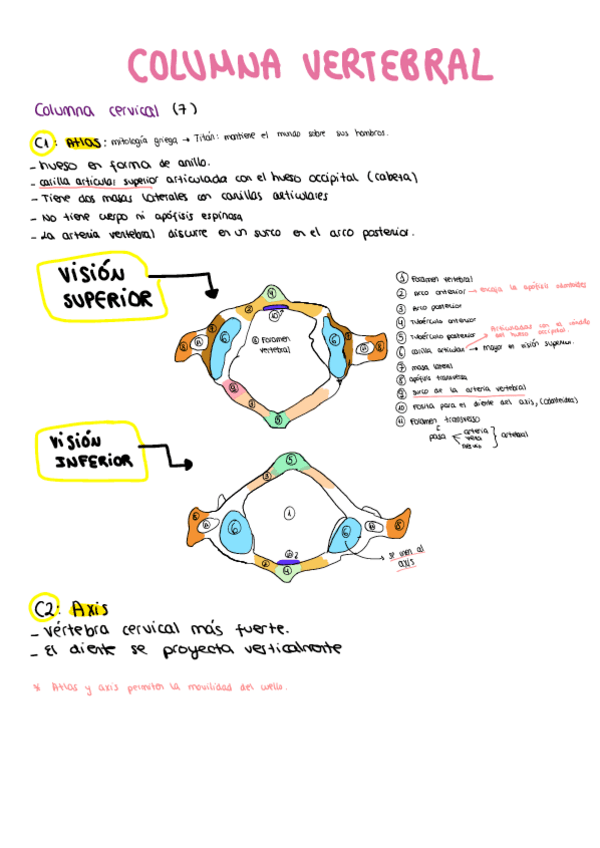 COLUMNA VERTEBRAL
Columna cervical (7)
C1: Atlas: mitología griega → Titán: mantiene el mundo sobre sus hombros.
- hueso en forma de anillo.
- carilla articular superior articulada con el hueso occipital (cabeza)
- Tiene dos masas laterales con carillas articulares
- No tiene cuerpo ni apófisis espinosa
- La arteria vertebral discurre en un surco en el arco posterior.
VISIÓN
SUPERIOR
① Foramen vertebral
② Arco anterior → encaja la apófisis odontoides
③ Arco posterior
④ Tubérculo anterior
⑤ Tubérculo posterior
Articulados con el cóndilo
del hueso occipital.
⑥ carilla articular → mayor en visión superior.
⑦ masa lateral
⑧ apófisis transversa
⑨ surco de la arteria vertebral
⑩ Fosita para el diente del axis, (odontoides)
⑪ Foramen transverso
pasa
arteria
vena
nervio
vertebral
① Foramen
vertebral
VISIÓN
INFERIOR
se unen al
axis
C2: Axis
- Vértebra cervical más fuerte.
- El diente se proyecta verticalmente
* Atlas y axis permiten la movilidad del cuello.